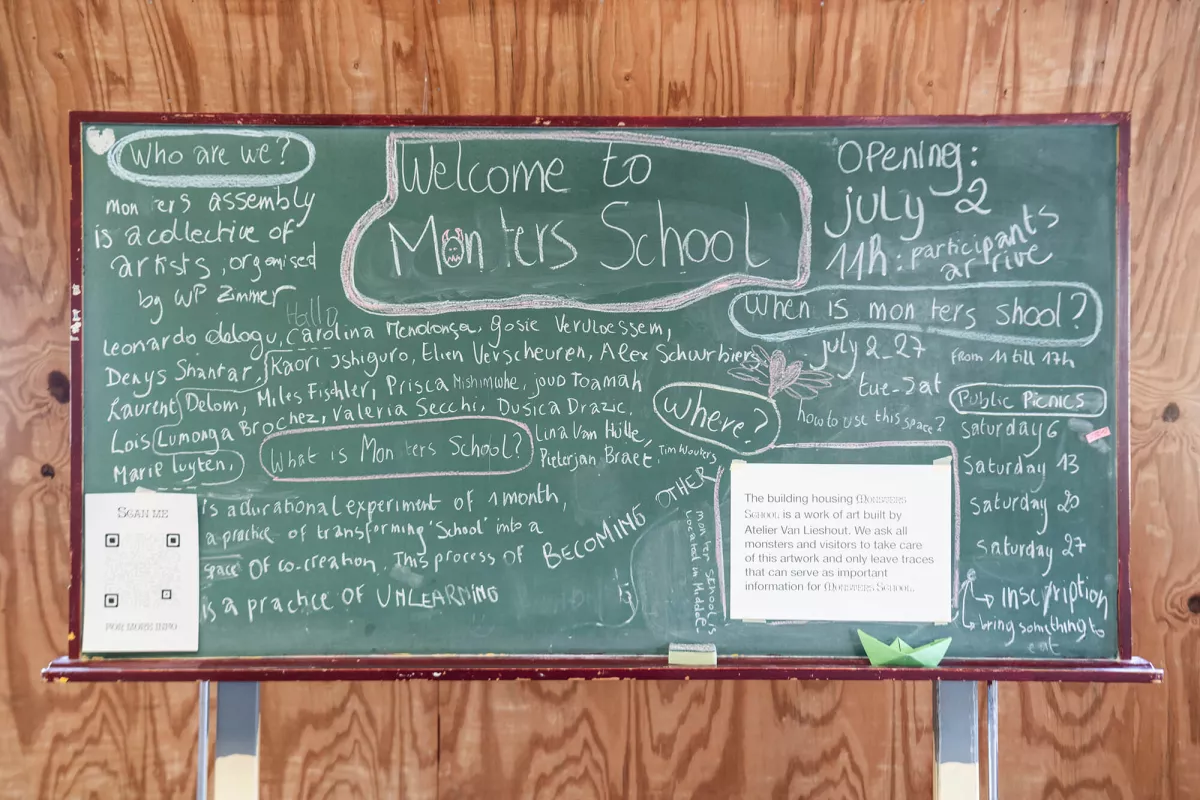 Who are we?
mon ers assembly
is a collective of
artists, organised
by WP Zimmer
Hallo
Leonardo delogu, Carolina Mendonça, Gosie Vervloessem,
Denys Shantar, Kaori Ishiguro, Elien Verscheuren, Alex Schuurbiers
Laurent Delom, Miles Fischler, Prisca Mishimwhe, joud Toamah
Lois Lumonga Brochez, Valeria Secchi, Dusica Drazic,
Marie Luyten,
Lina Van Hulle,
Pieterjan Braet, Tim Wouters
What is Mon ters School?
is a durational experiment of 1 month,
a practice of transforming 'School' into a
space of co-creation. This process of BECOMING OTHER
is a practice OF UNLEARNING
SCAN ME
FOR MORE INFO
Welcome to
Mon ters School
Opening:
july 2
11h: participants
arrive
When is mon ters shool?
july 2_27
from 11 till 17h
tue-sat
how to use this space?
Where?
mon ter school's
located in Middel-
The building housing MONSTERS
SCHOOL is a work of art built by
Atelier Van Lieshout. We ask all
monsters and visitors to take care
of this artwork and only leave traces
that can serve as important
information for MONSTERS SCHOOL.
Public Picnics
Saturday 6
Saturday 13
Saturday 20
Saturday 27
↳ inscription
↳ bring something to
eat